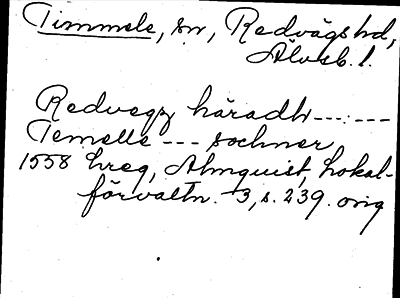 Timmele, sn, Redvägs hd,
Älvsb. l.
Redvegz häradh --- ---
Temelle --- sochner
1558 hreg, Almquist, Lokal-
förvaltn. 3, s. 239. orig